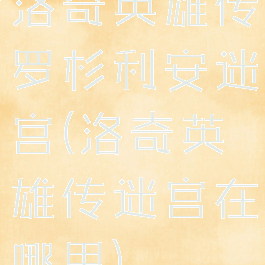 洛奇英雄传
罗杉利安迷
宫(洛奇英
雄传迷宫在
哪里)